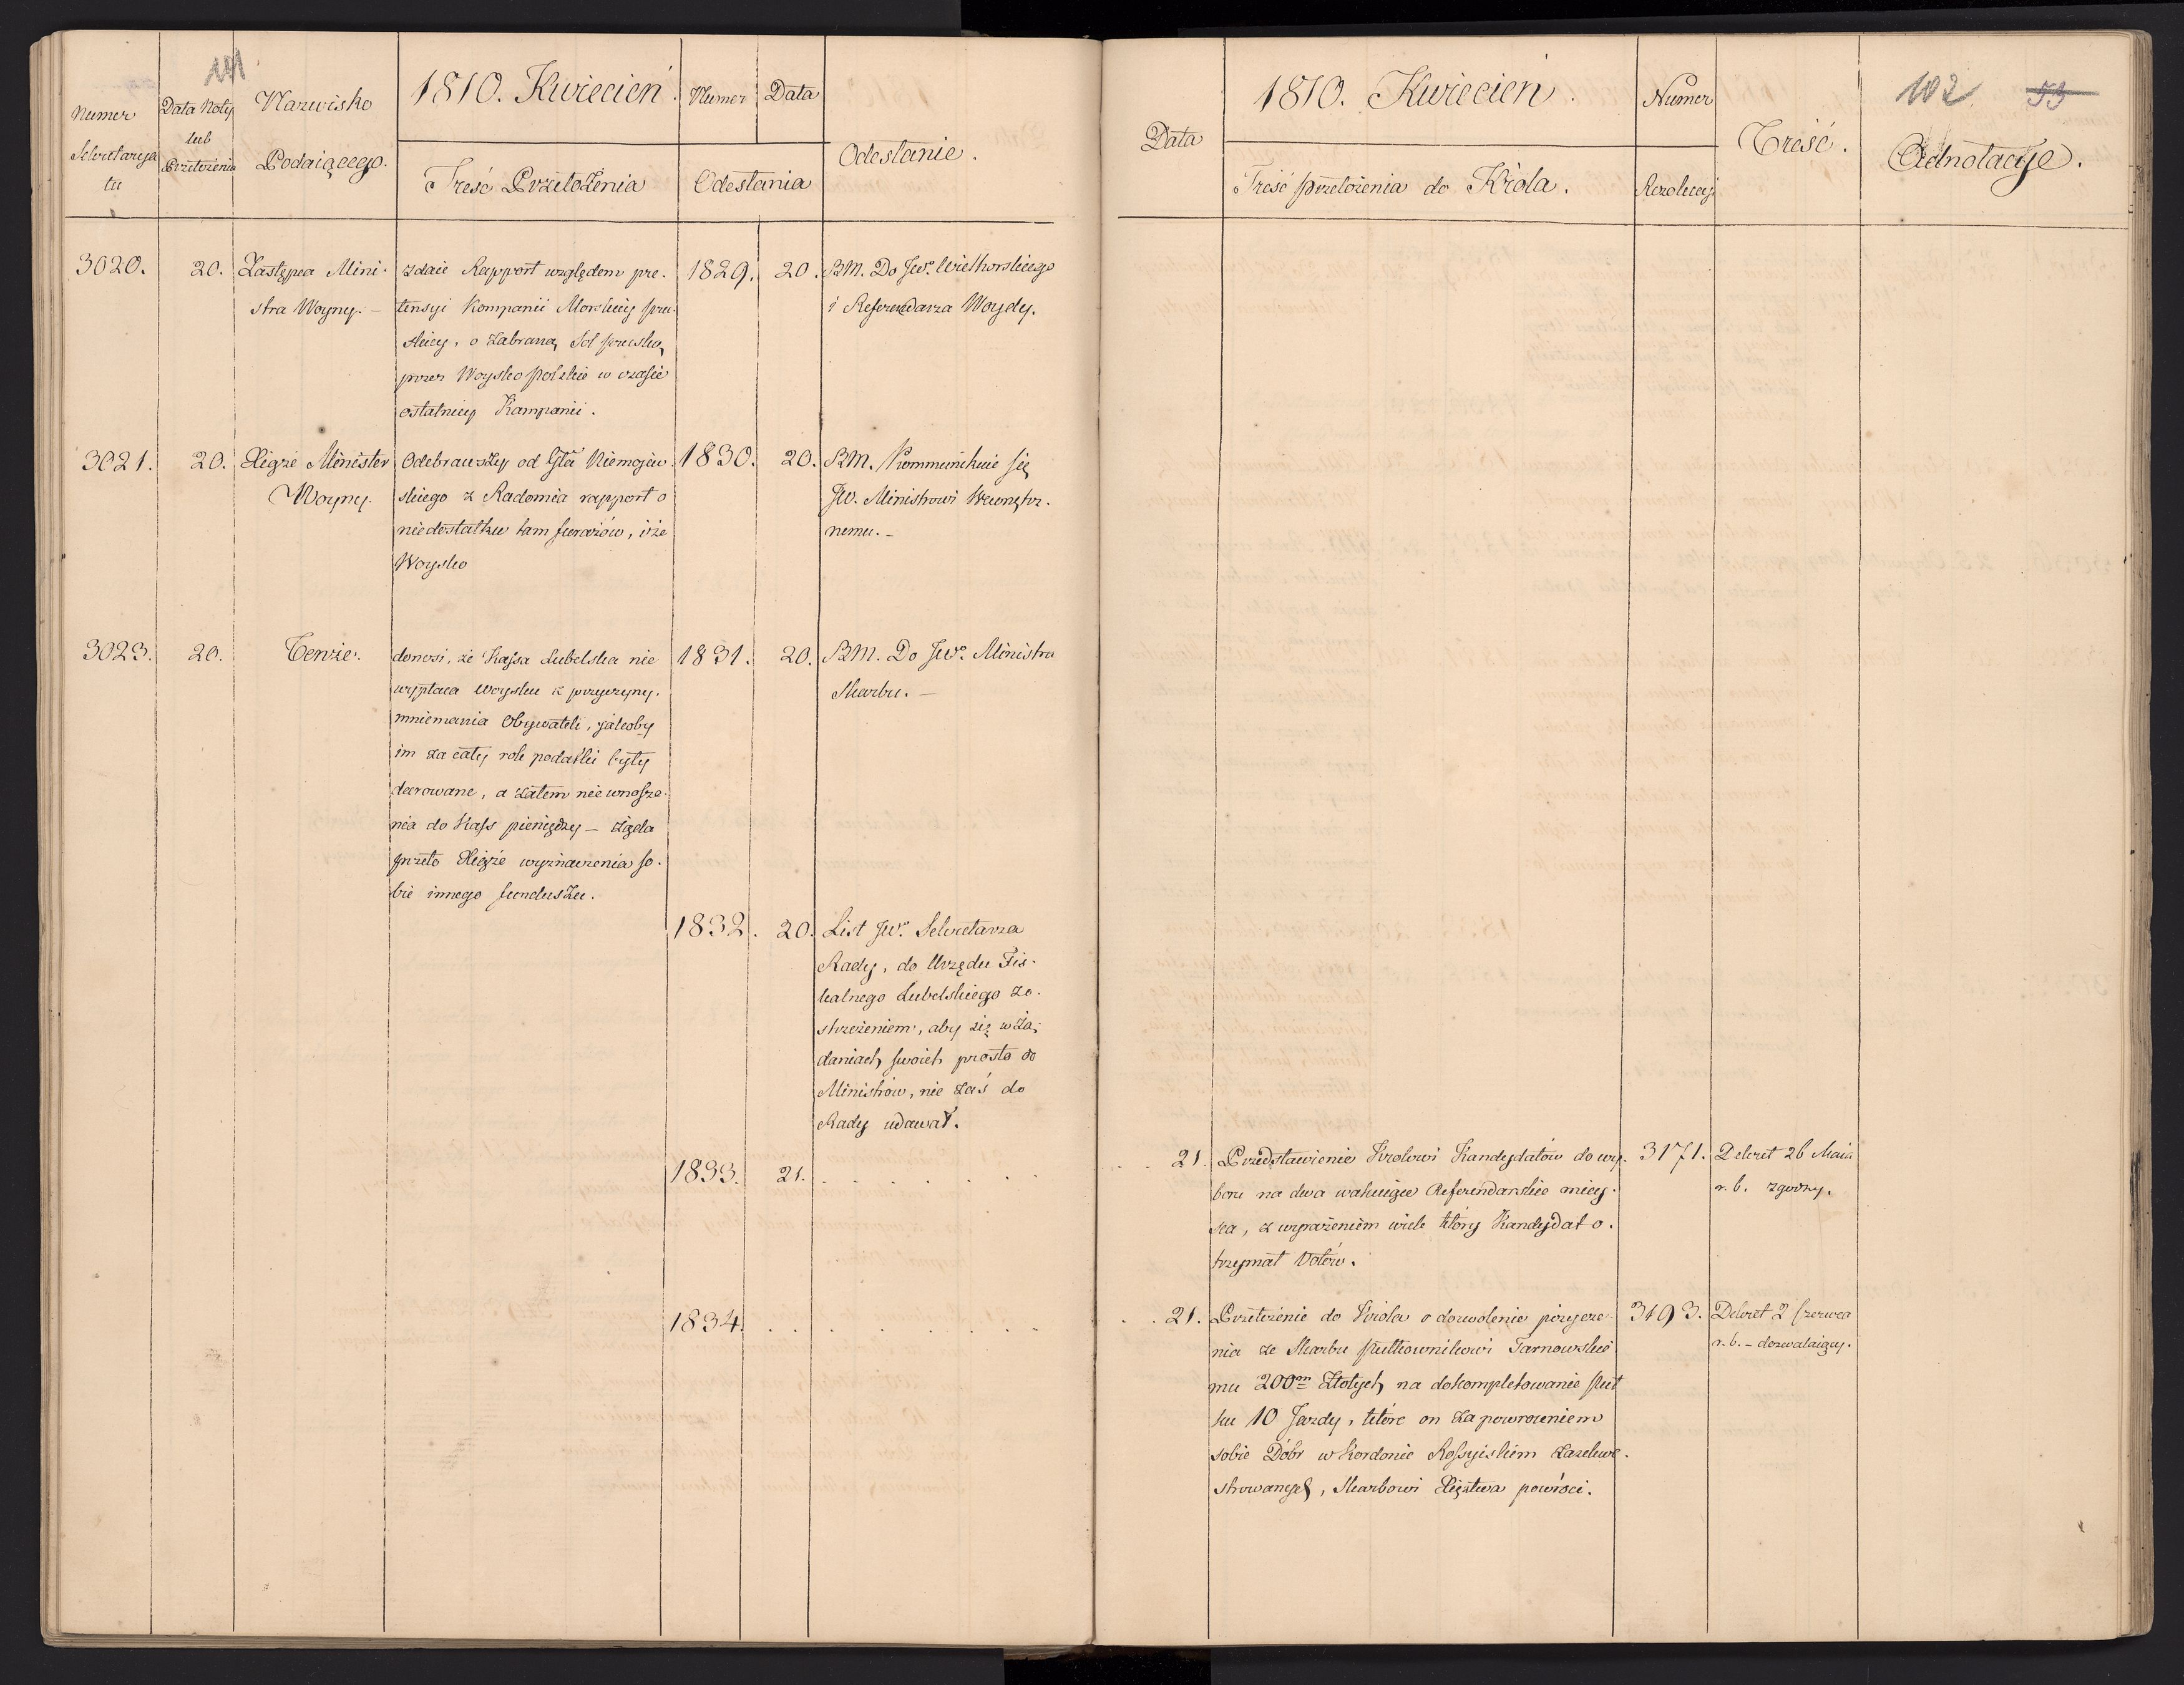 1810. Kwiecień.
Numer
Sekretarya
tu
Data Noty
lub
Przełożenia
Nazwisko
Podaiącego.
Treść Przełożenia
Numer
Data
Odesłania
Odesłanie.
3020.
20.
Zastępca Mini-
stra Woyny. –
zdaie Rapport względem pre-
tensyi Kompanii Morskiey pru-
skiey, o zabraną Sol pruską
przez Woysko polskie w czasie
ostatniey Kampanii.
1829.
20.
BM. Do JW° Wielhorskiego
i Referendarza Woydy.
3021.
20.
Xiąże Minister
Woyny.
Odebrawszy od Gła Niemojew-
skiego z Radomia rapport o
niedostatku tam furażów, i że
Woysko
1830.
20.
BM. Kommunikuie się
JW. Ministrowi Wewnętrz-
nemu. –
3023.
20.
Tenże.
donosi, że Kassa Lubelska nie
wypłaca woysku z przyczyny
mniemania Obywateli, jakoby
im za cały rok podatki były
darowane, a zatem nie wnosze-
nia do Kass pieniędzy – żąda
przeto Xiąże wyznaczenia so-
bie innego funduszu.
1831.
20.
BM. Do JW° Ministra
Skarbu. –
1832.
20.
List JW° Sekretarza
Rady, do Urzędu Fis-
kalnego Lubelskiego ze-
strzeżeniem, aby się w żą-
daniach swoich prosto do
Ministrów, nie zaś do
Rady udawał.
1833.
21.
1834.
102. 53
1810. Kwiecień.
Data
Treść przełożenia do Króla.
Numer
Rezolucyi
Treść.
Adnotacye.
21.
Przedstawienie Krolowi Kandydatów do wy-
boru na dwa wakuiące Referendarskie miey-
sca, z wyrażeniem wiele który Kandydat o-
trzymał Votów.
3171.
Dekret 26 Maia
r. b. zgodny.
21.
Przełożenie do Króla o dozwolenie pożycze-
nia ze Skarbu pułkownikowi Tarnowskie
mu 200m Złotych na dokompletowanie puł
ku 10 Jazdy, które on za powroceniem
sobie Dóbr w Kordonie Rossyiskim zasekwe-
strowanych, Skarbowi Xięstwa powróci.
3193.
Dekret 2 Czerwca
r. b. – dozwalaiący.